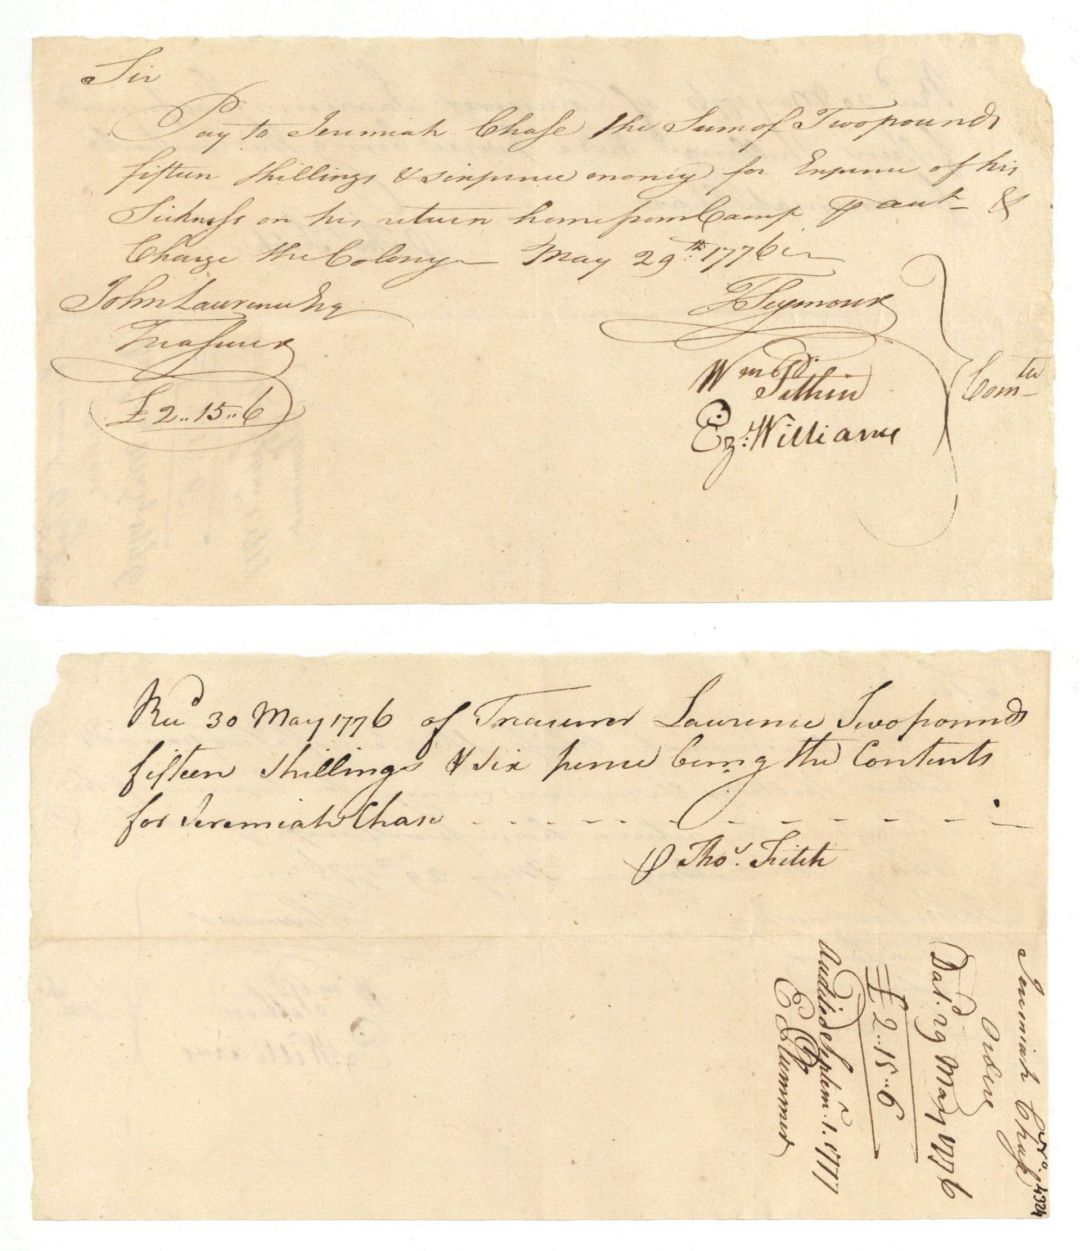 Sir
Pay to Jeremiah Chase the Sum of Two pounds
fifteen shillings & sixpence money for Expence of his
Sickness on his return home from Camp ⅌ acct &
Charge the Colony May 29th 1776
John Lawrence Esq
Treasurer
£2..15..6
T Seymour
Wm Pitkin
Ez: Williams
Comtee
Recd 30 May 1776 of Treasurer Lawrence Two pounds
fifteen shillings & six pence being the Contents
for Jeremiah Chase
⅌ Thos. Fitch
No. 4324
Jeremiah Chase
Order
Dat. 29 May 1776
£2..15..6
Audited Septemr. 1. 1777
E Plummer